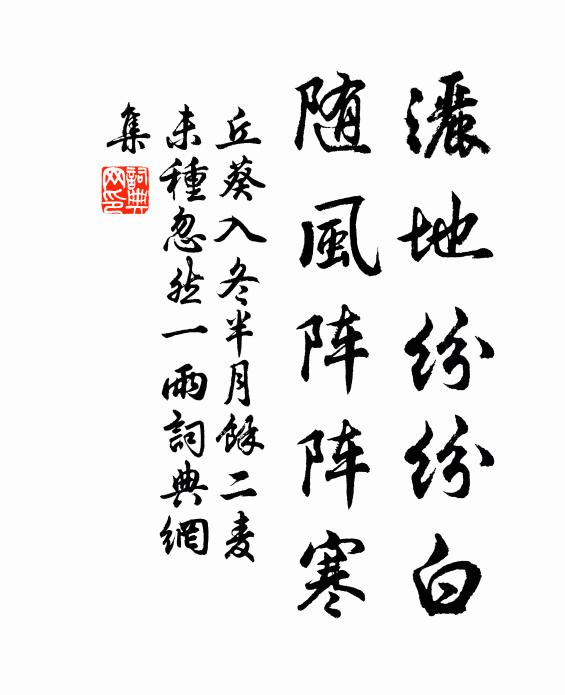 灑地紛紛白
随風阵阵寒
丘葵入冬半月餘二麦
未種忽然一雨詞典網
集
詞典
网印